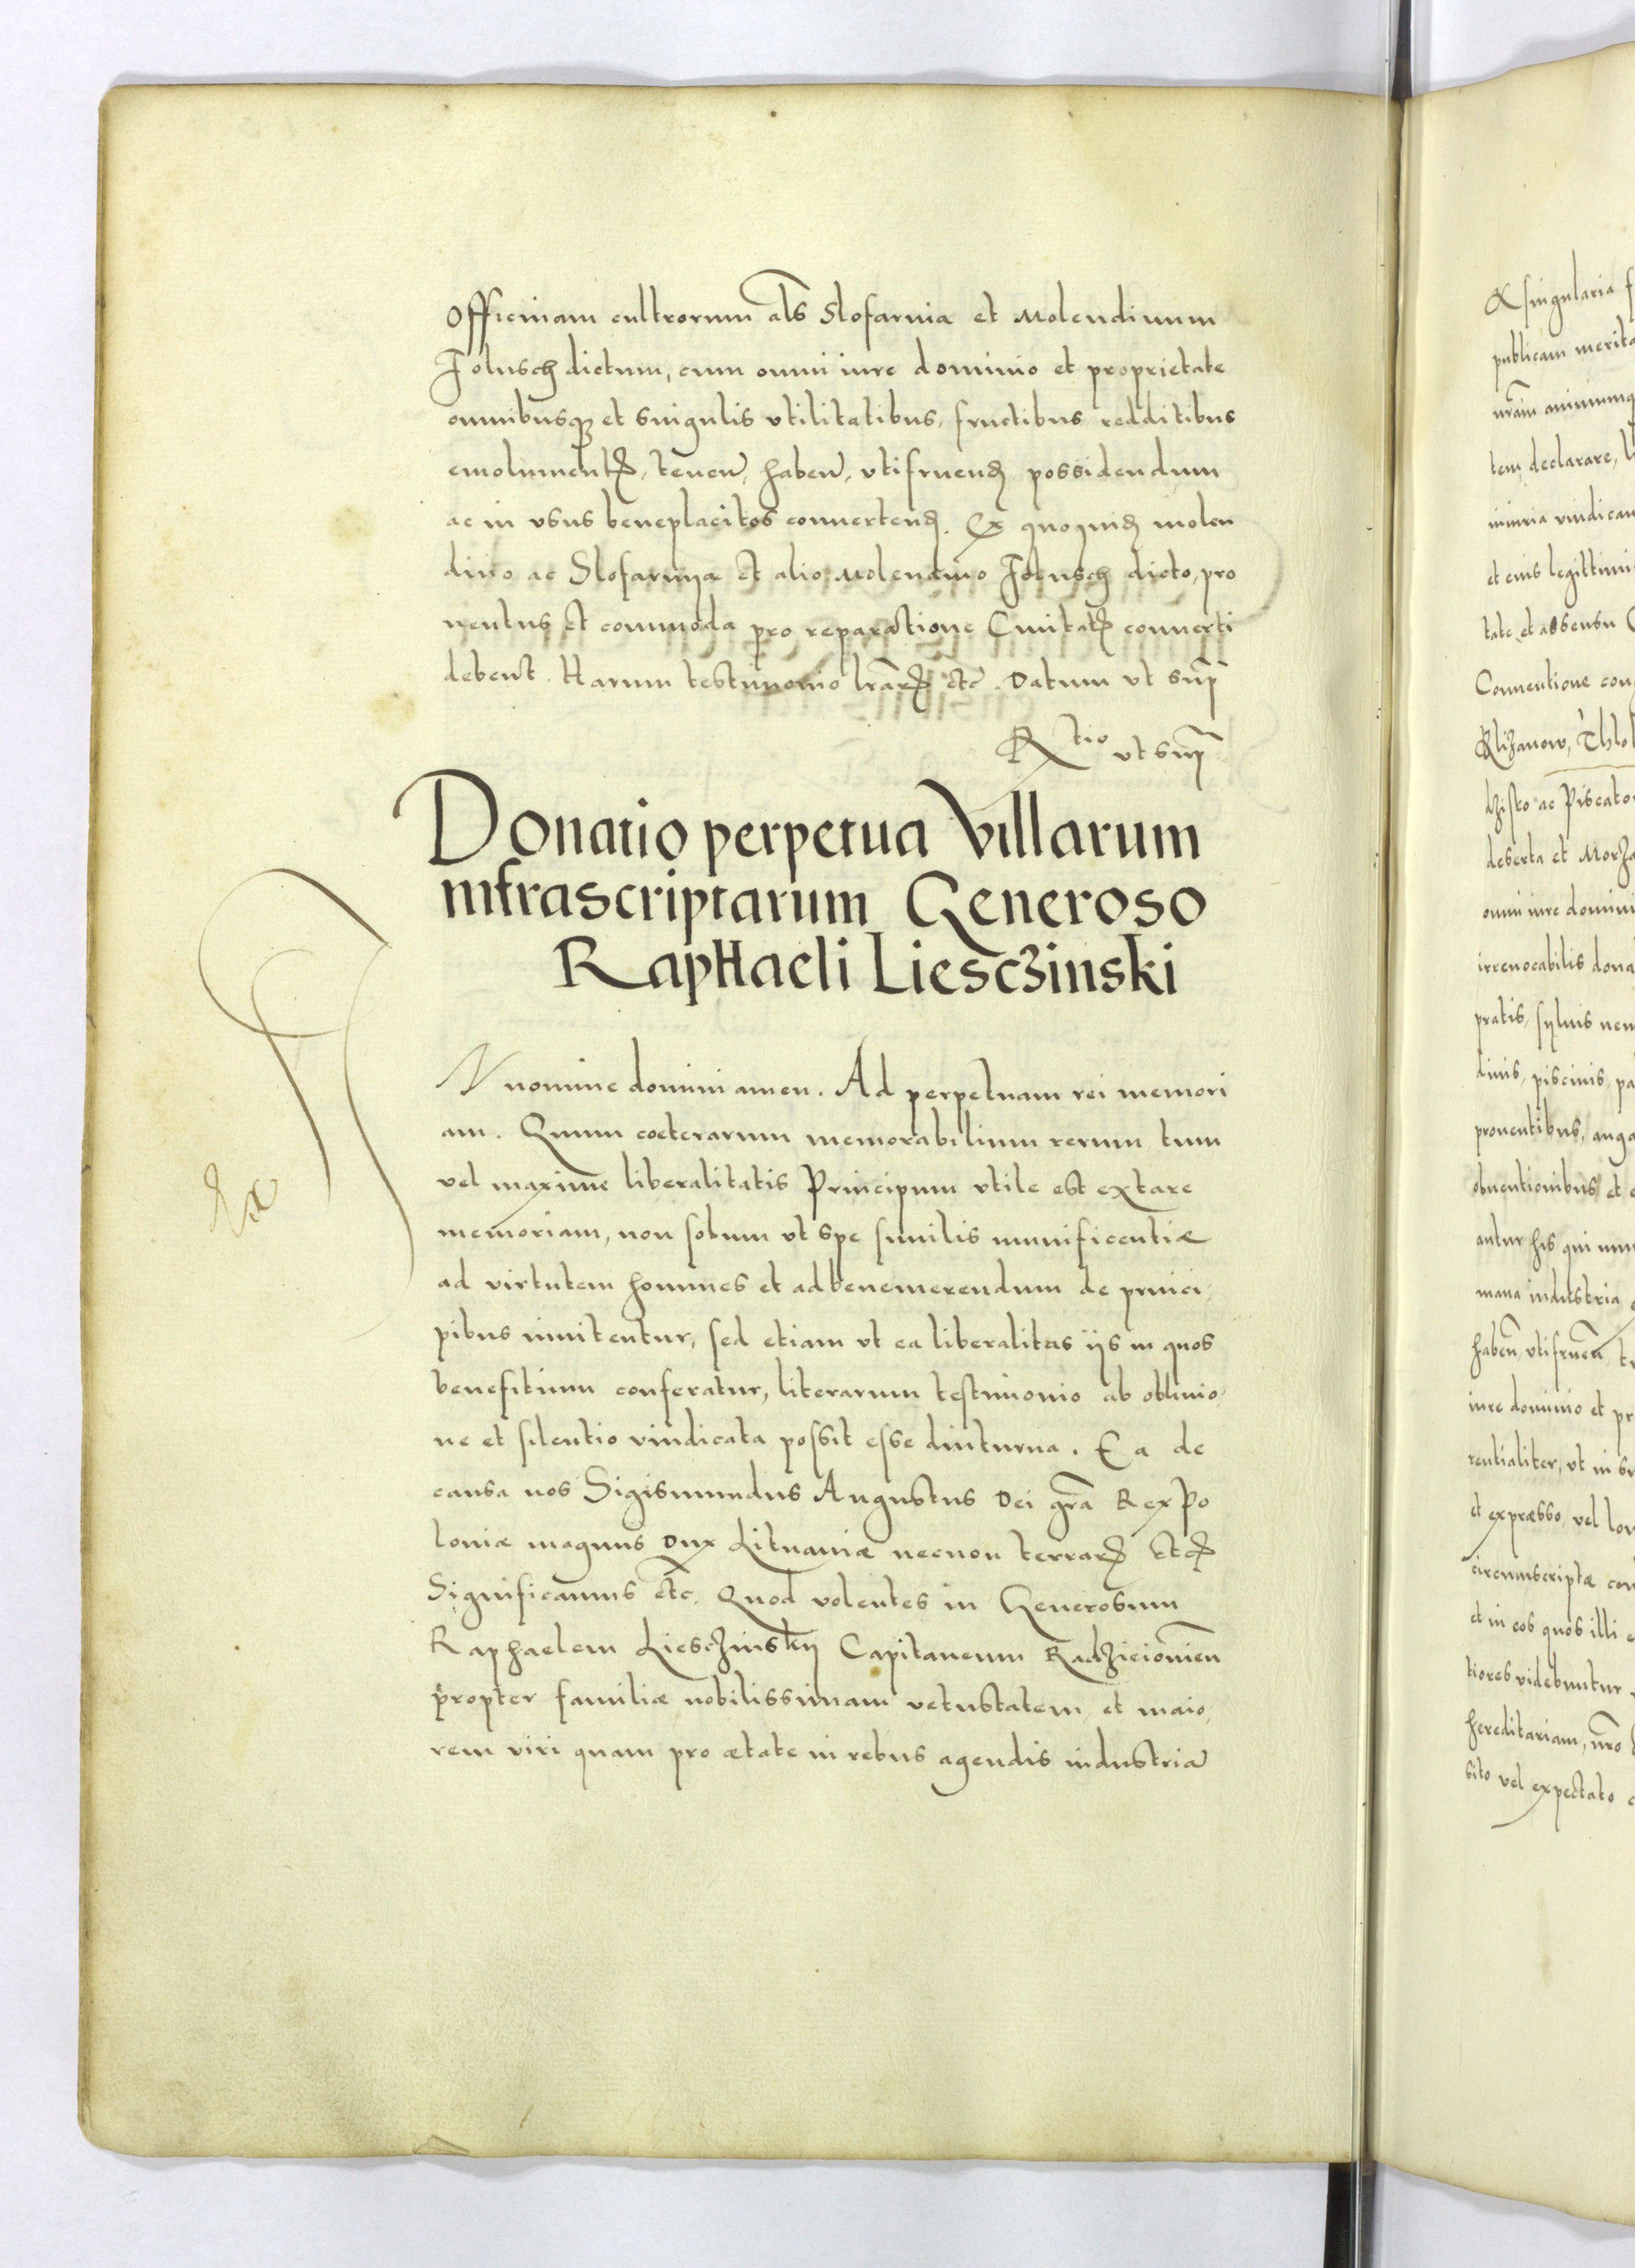 Officinam cultrorum als Slofarnia et Molendinum
Folusch dictum, cum omni iure dominio et proprietate
omnibusqꝫ et singulis vtilitatibus, fructibus redditibus
emolumentꝭ, tenen̄, haben̄, vtifruenꝭ possidendum
ac in vsus beneplacitos conuertenꝭ. Ex quoquiꝭ molen
dino ac Slofarnya et alio Molendino Folusch dicto, pro
uentus et commoda pro reparatione Ciuitatꝭ conuerti
debent. Harum testimonio lrarꝭ etc. Datum vt supꝰ
Rtio vt supꝰ
Donatio perpetua Villarum
infrascriptarum Generoso
Raphaeli Liesczinski
N nomine domini amen. Ad perpetuam rei memori
am. Quum coeterarum memorabilium rerum tum
vel maxime liberalitatis Principum vtile est extare
memoriam, non solum vt spe similis munificentiæ
ad virtutem homines et ad benemerendum de princi
pibus inuitentur, sed etiam vt ea liberalitas ijs in quos
benefitium conferatur, literarum testimonio ab obliuio
ne et silentio vindicata possit esse diuturna. Ea de
causa nos Sigismundus Augustus Dei gra Rex Po
loniæ magnus Dux Lituaniæ necnon terrarꝭ etcꝭ
Significamus etc. Quod volentes in Generosum
Raphaelem Liesczinskij Capitaneum Radzieiouien̄
propter familiæ nobilissimam vetustatem, et maio
rem viri quam pro ætate in rebus agendis industria
& singularia f
publicam merita
nram animumq
tem, declarare, l
iniuria vindican
et eius legittimi
tate et assensu
Conuentione con
Klizanow, Chlo
dzisko ac Piscato
deserta et Morza
omni iure domini
irreuocabilis dona
pratis, syluis nem
dinis, piscinis, pa
prouentibus, anga
obuentionibus et
antur his qui nun
mana industria
haben̄ vtifruen̄ t
iure dominio et pr
rentialiter, vt in su
et expresso, vel lon
circumscriptæ con
et in eos quos illi
tiores videbuntur
hereditariam, nro
sito vel expectato